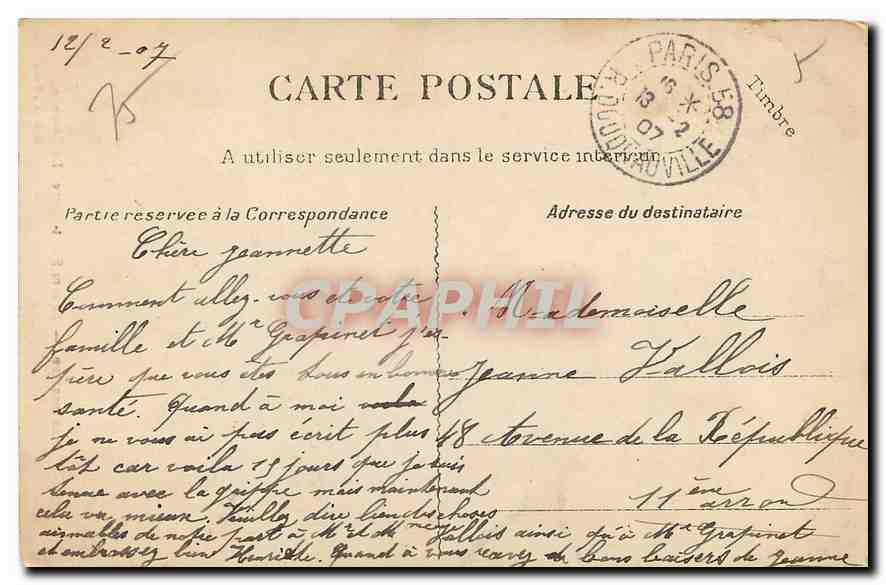 12/2-07
CARTE POSTALE
PARIS 58
R. DOUDEAUVILLE
16 *
13 2
07
Timbre
A utiliser seulement dans le service interieur
Partie reservee à la Correspondance
Adresse du destinataire
Chère Jeannette
Comment allez-vous et votre
famille et Mr Grapinet j'es-
père que vous êtes tous en bonne
santé. Quand à moi
je ne vous ai pas écrit plus
tôt car voila 15 jours que je suis
tenue avec la grippe mais maintenant
cela va mieux. Veuillez dire bien des choses
aimables de notre part à Mr et Mme Vallois ainsi qu'à Mr Grapinet
et embrassez bien Henriette. Quand à vous recevez de bons baisers de Jeanne
Mademoiselle
Jeanne Vallois
48 Avenue de la République
11ème arrond
CPAPHIL